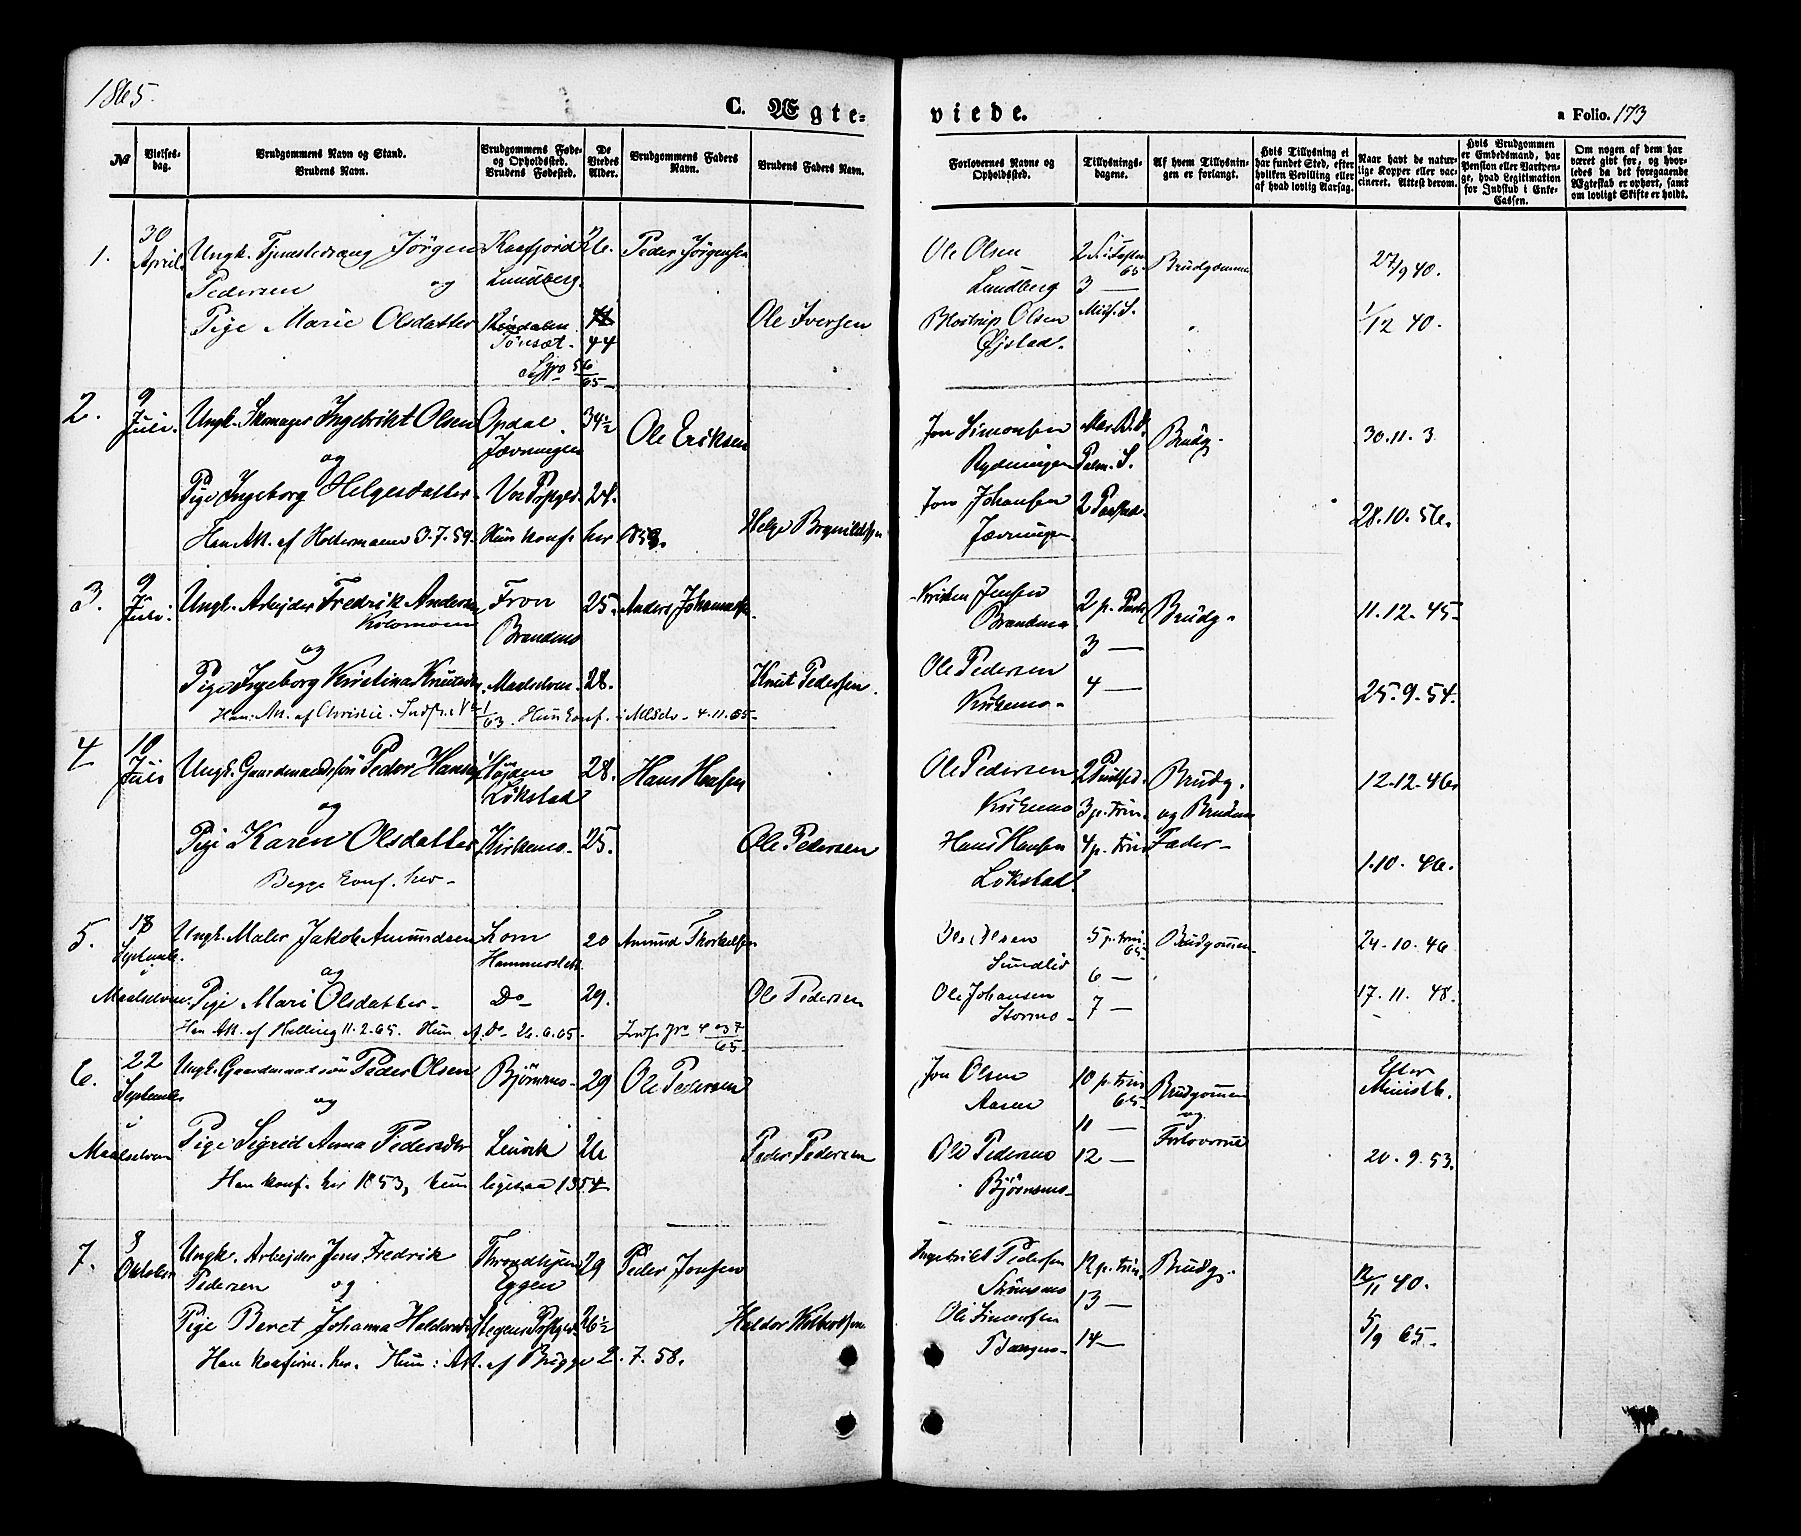 1865.
C. Ægte-
viede.
a Folio. 173
No
Vielses-
dag.
Brudgommens Navn og Stand.
Brudens Navn.
Brudgommens Føde-
og Opholdssted.
Brudens Fødested.
De
Viedes
Alder.
Brudgommens Faders
Navn.
Brudens Faders Navn.
Forlovernes Navne og
Opholdssted.
Tillysnings-
dagene.
Af hvem Tillysnin-
gen er forlangt.
Hvis Tillysning ei
har fundet Sted, efter
hvilken Bevilling eller
af hvad lovlig Aarsag.
Naar havt de natur-
lige Kopper eller vac-
cineret. Attest derom.
Hvis Brudgommen
er Embedsmand, har
Pension eller Vartpen-
ge, hvad Legitimation
for Indskud i Enke-
Cassen.
Om nogen af dem har
været gift før, og hvor-
ledes da det foregaaende
Ægteskab er ophørt, samt
om lovligt Skifte er holdt.
1.
30
April.
Ungk. Tjenestedreng Jörgen
Pedersen og
Kaafjord
Lundberg.
26.
Peder Jörgensen
Ole Olsen
Lundberg
3 —
Brudgommen
27/9 40.
Pige Marie Olsdatter
Tönset.
44
Ole Iversen
Olsen
Øistad.
1/12 40.
2.
9
Juli.
Ungk. Skomager Ingebrikt Olsen
og
Opdal.
Jævningen
34½
Ole Eriksen
Jon Simonsen
Rydningen
Palm. S.
Brudg.
30.11.3
Pige Ingeborg Helgesdatter
28.
Helge Bryníldsen
Jon Johansen
Jævningen
28.10.56.
Han Att. af Holtermann 3.7.59. Hun konf. her 1853.
3.
9
Juli.
Ungk. Arbejder Fredrik Andersen
Kolomoen
og
Fron
Brandmo
25.
Anders Johannessen
Kristen Jensen
Brandmo
3 —
Brudg.
11.12.45
Pige Ingeborg Kristina Knutsdtr.
Maalselven.
28.
Knut Pedersen.
Ole Pedersen
Kirkemo.
4 —
25.9.54.
Han: Att. af Christie. Hun konf. i Mlselv. 4.11.65
4
10
Juli
Ungk. Gaardmandssön Peder Hansen
og
Löjden
Lökstad
28.
Hans Hansen
Ole Pedersen
Kirkemo
3 p. trin.
Brudg.
og Brudens
Fader
12-12.46
Pige Karen Olsdatter
Kirkemo.
25.
Ole Pedersen
Hans Hansen
Lökstad.
4 p. trin
1.10.46.
Begge konf. her
5.
18
September
i
Maalselven.
Ungk. Maler Jakob Amundsen
og
Lom
20
Amund Thorkelsen
Ole Olsen
Sundlid
5 p. trin.
65
6 —
Brudgommen
24.10.46
Pige Mari Olsdatter
Do
29.
Ole Pedersen
Ole Johansen
Stormo
7 —
17.11.48.
Han Att. af Helling 11.2.65. Hun Att. Do 26.6.65.
6.
22
September
i
Maalselven
Ungk. Gaardmandssön Peder Olsen
og
Björnmo
29
Ole Pedersen
Jon Olsen
Aasen
10 p. trin
65
11 —
Brudgommen
og
Forloverne
Efter
Ministb.
Pige Sigrid Anna Pedersdtr
Lenvik
26
Peder Pedersen
Ole Pedersen
Björnsmo
12 —
20.9.53.
Han konf. her 1853, hun ligesaa 1854
7.
8
Oktober
Ungk. Arbejder Jens Fredrik
Pedersen og
Throndhjem
Eggen
29
Peder Jensen
Ingebrikt Pedersen
Strömsmo
12 p. trin.
13 —
Brudg.
12/11 40.
Pige Beret Johanna Haldorsdtr
26½
Haldor
Ole Simonsen
14 —
5/9 65.
Han konfirm. her. Hun: Att. af Brügge 2.7.58.